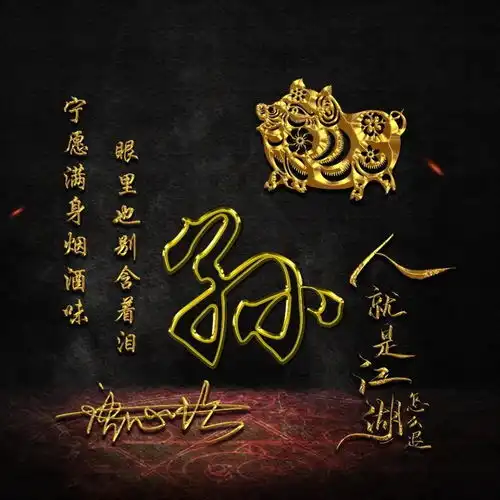 宁愿满身烟酒味
眼里也别含着泪
孙
人就是江湖
怎么退